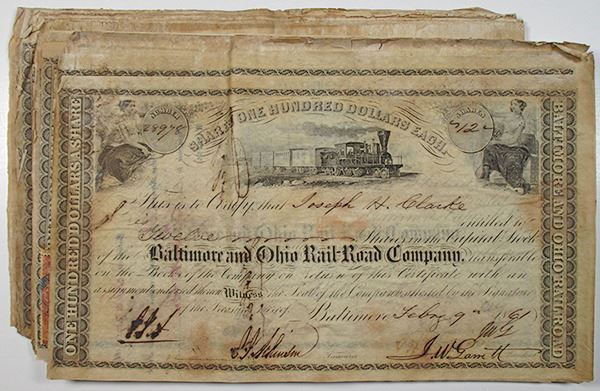 NUMBER
28978
SHARES ONE HUNDRED DOLLARS EACH.
SHARES
12
ONE HUNDRED DOLLARS A SHARE
BALTIMORE AND OHIO RAILROAD
This is to Certify, that Joseph H. Clarke
is entitled to
Twelve Shares in the Capital Stock
of the Baltimore and Ohio Rail-Road Company, transferable
on the Books of the Company on Return of this Certificate with an
assignment endorsed thereon. Witness the Seal of the Company attested by the Signature
of the Baltimore Feb 9 1861
J. W. Garrett